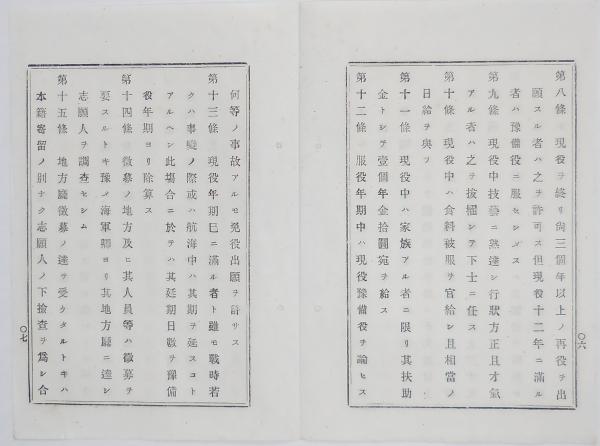 第八條　現役ヲ終リ尙三個年以上ノ再役ヲ出
願スル者ハ之ヲ許可ス但現役十二年ニ滿ル
者ハ豫備役ニ服セシメス
第九條　現役中技藝ニ熟達シ行狀方正且才氣
アル者ハ之ヲ拔擢シテ下士ニ任ス
第十條　現役中ハ食料被服ヲ官給シ且相當ノ
日給ヲ與フ
第十一條　現役中ハ家族アル者ニ限リ其扶助
金トシテ壹個年金拾圓宛ヲ給ス
第十二條　服役年期中ハ現役豫備役ヲ論セス
〇六
何等ノ事故アルモ免役出願ヲ許サス
第十三條　現役年期已ニ滿ル者ト雖モ戰時若
クハ事變ノ際或ハ航海中ハ其期ヲ延スコト
アルヘシ此塲合ニ於テハ其延期日數ヲ豫備
役年期ヨリ除算ス
第十四條　徵募ノ地方及ヒ其人員等ハ徵募ヲ
要スルトキ豫メ海軍卿ヨリ其地方廳ニ達シ
志願人ヲ調査セシム
第十五條　地方廳徵募ノ達ヲ受ケタルトキハ
本籍寄留ノ別ナク志願人ノ下檢査ヲ爲シ合
〇七